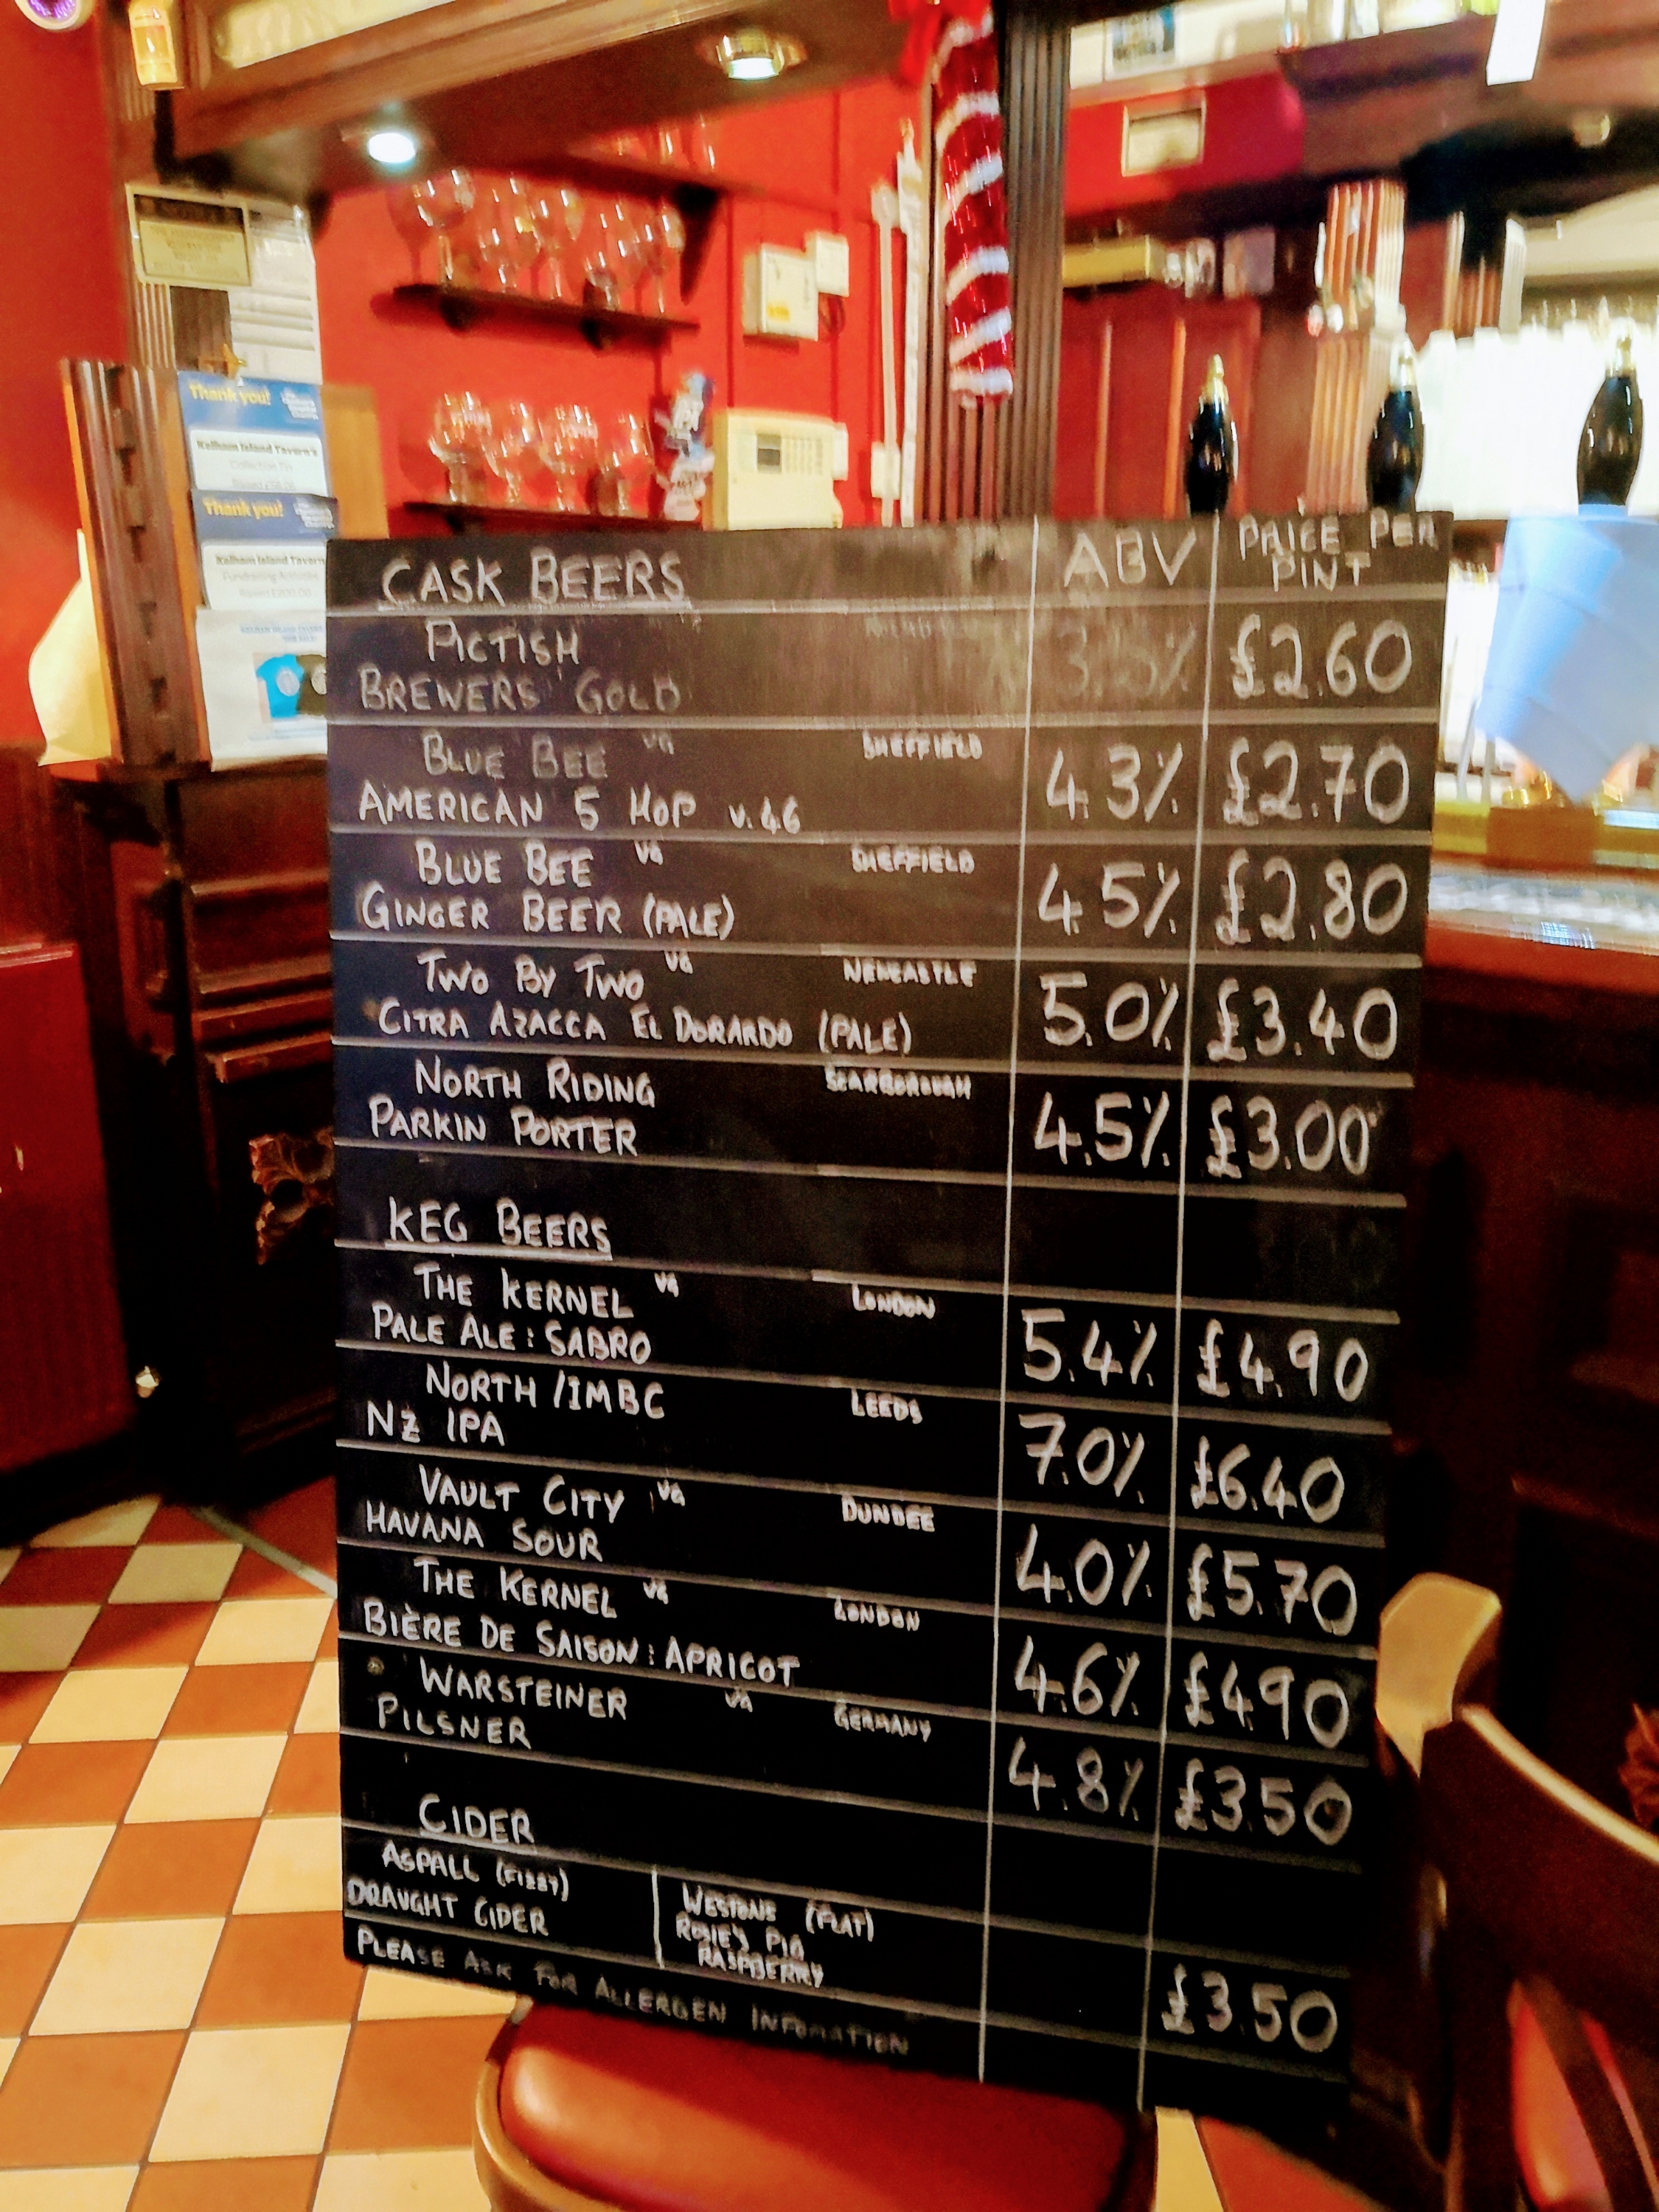 Thank you!
Kelham Island Tavern's
Thank you!
Kelham Island Tavern
Fundraising Activities
CASK BEERS ABV PRICE PER PINT
PICTISH
BREWERS GOLD £2.60
BLUE BEE VG SHEFFIELD
AMERICAN 5 HOP V.46 4.3% £2.70
BLUE BEE VG SHEFFIELD
GINGER BEER (PALE) 4.5% £2.80
TWO BY TWO VG NEWCASTLE
CITRA AZACCA EL DORARDO (PALE) 5.0% £3.40
NORTH RIDING SCARBOROUGH
PARKIN PORTER 4.5% £3.00
KEG BEERS
THE KERNEL VG LONDON
PALE ALE: SABRO 5.4% £4.90
NORTH/IMBC LEEDS
NZ IPA 7.0% £6.40
VAULT CITY VG DUNDEE
HAVANA SOUR 4.0% £5.70
THE KERNEL VG LONDON
BIÈRE DE SAISON: APRICOT 4.6% £4.90
WARSTEINER VG GERMANY
PILSNER 4.8% £3.50
CIDER
ASPALL (FIZZY)
DRAUGHT CIDER
WESTONS (FLAT)
ROSIE'S PIG
RASPBERRY
£3.50
PLEASE ASK FOR ALLERGEN INFOMATION